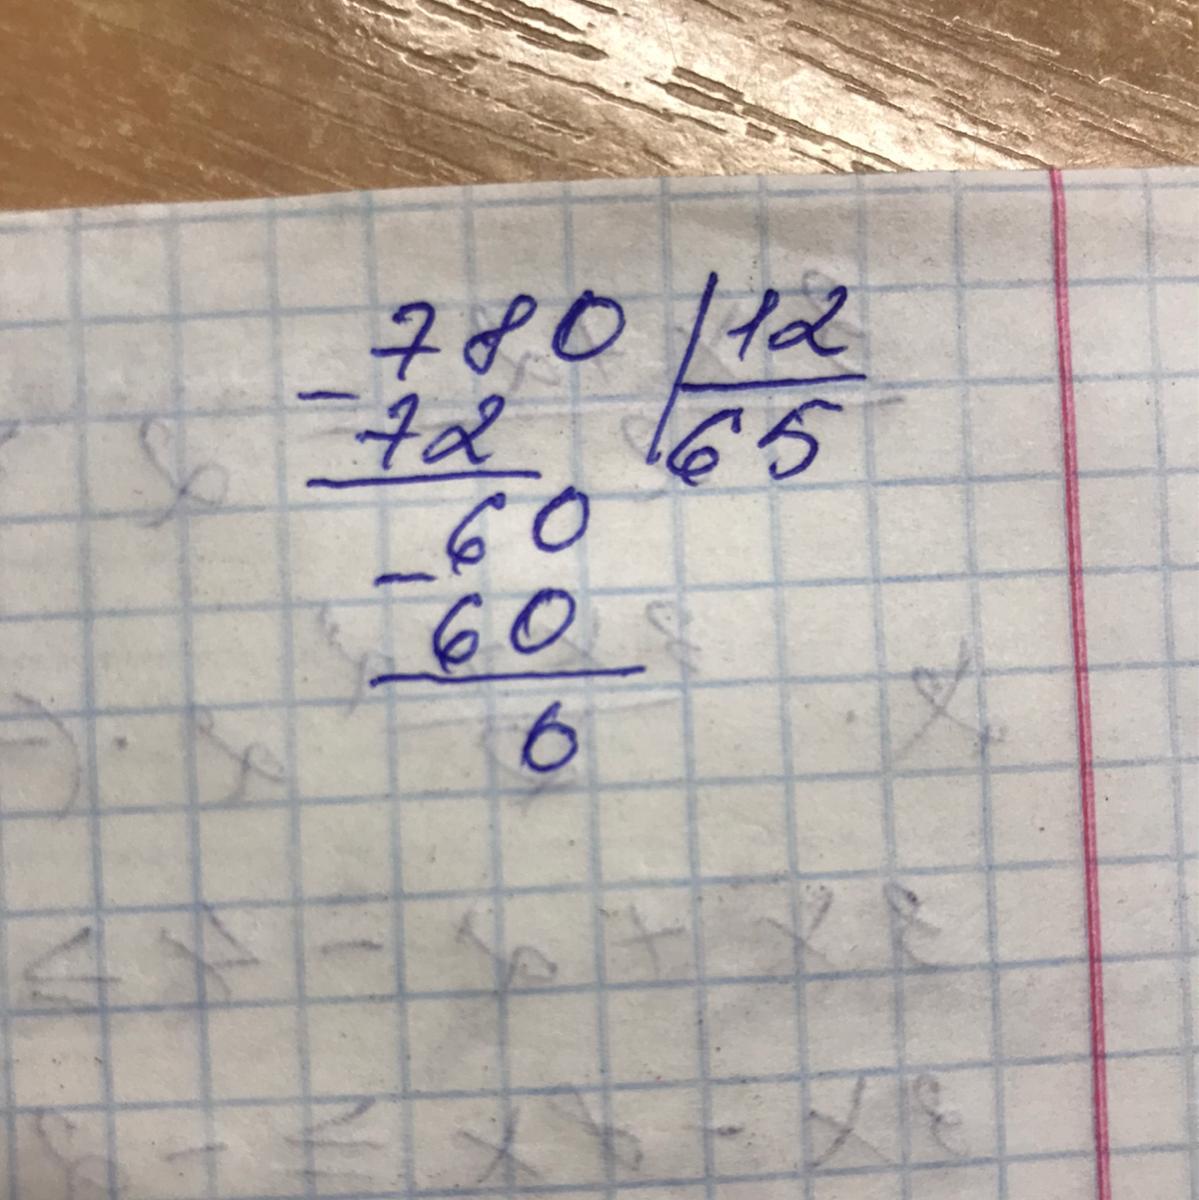 780 | 12
- 72 65
60
- 60
0